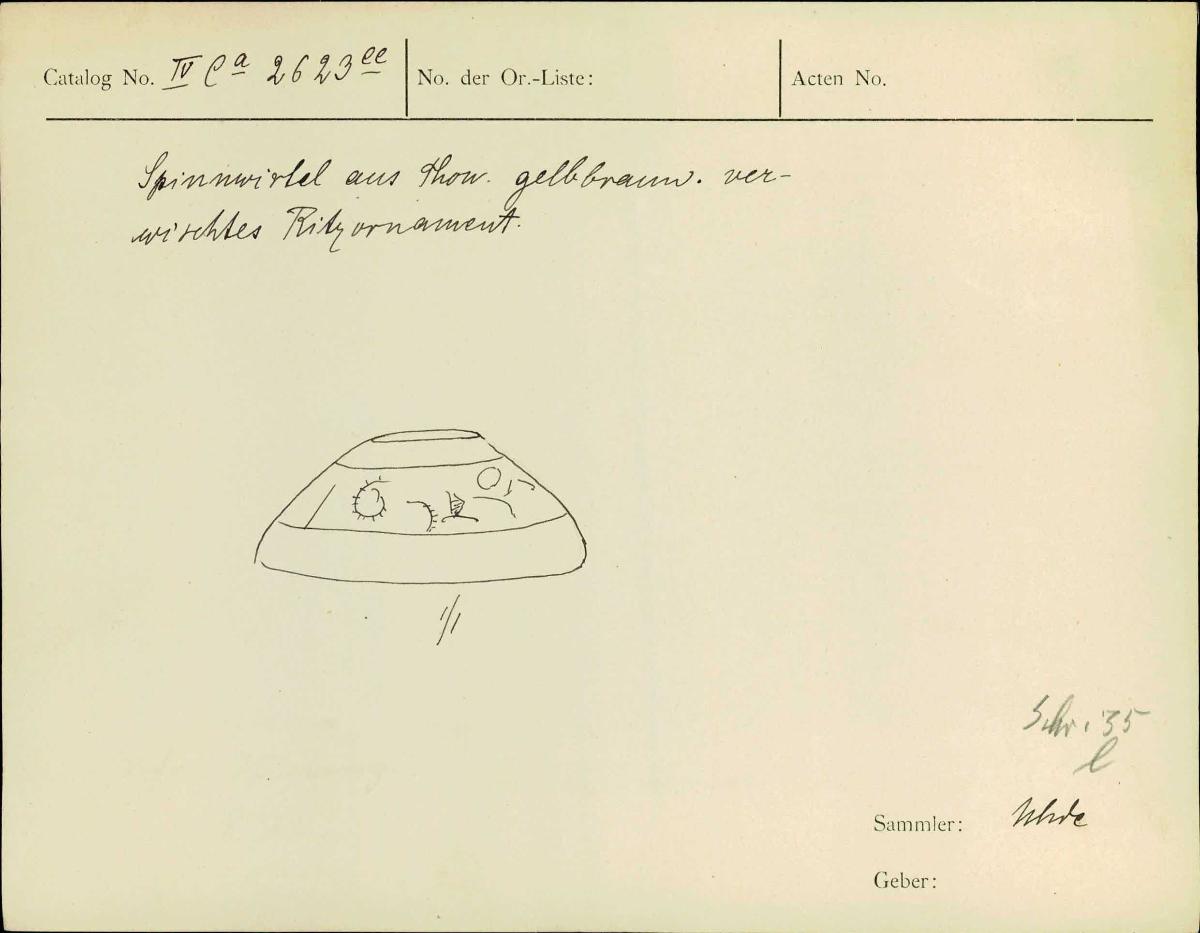 Catalog No. IV Ca 2623 ee
No. der Or.-Liste:
Acten No.
Spinnwirtel aus Thon. gelbbraun. ver-
wischtes Ritzornament.
1/1
Schr. 35
l
Sammler: Uhde
Geber: